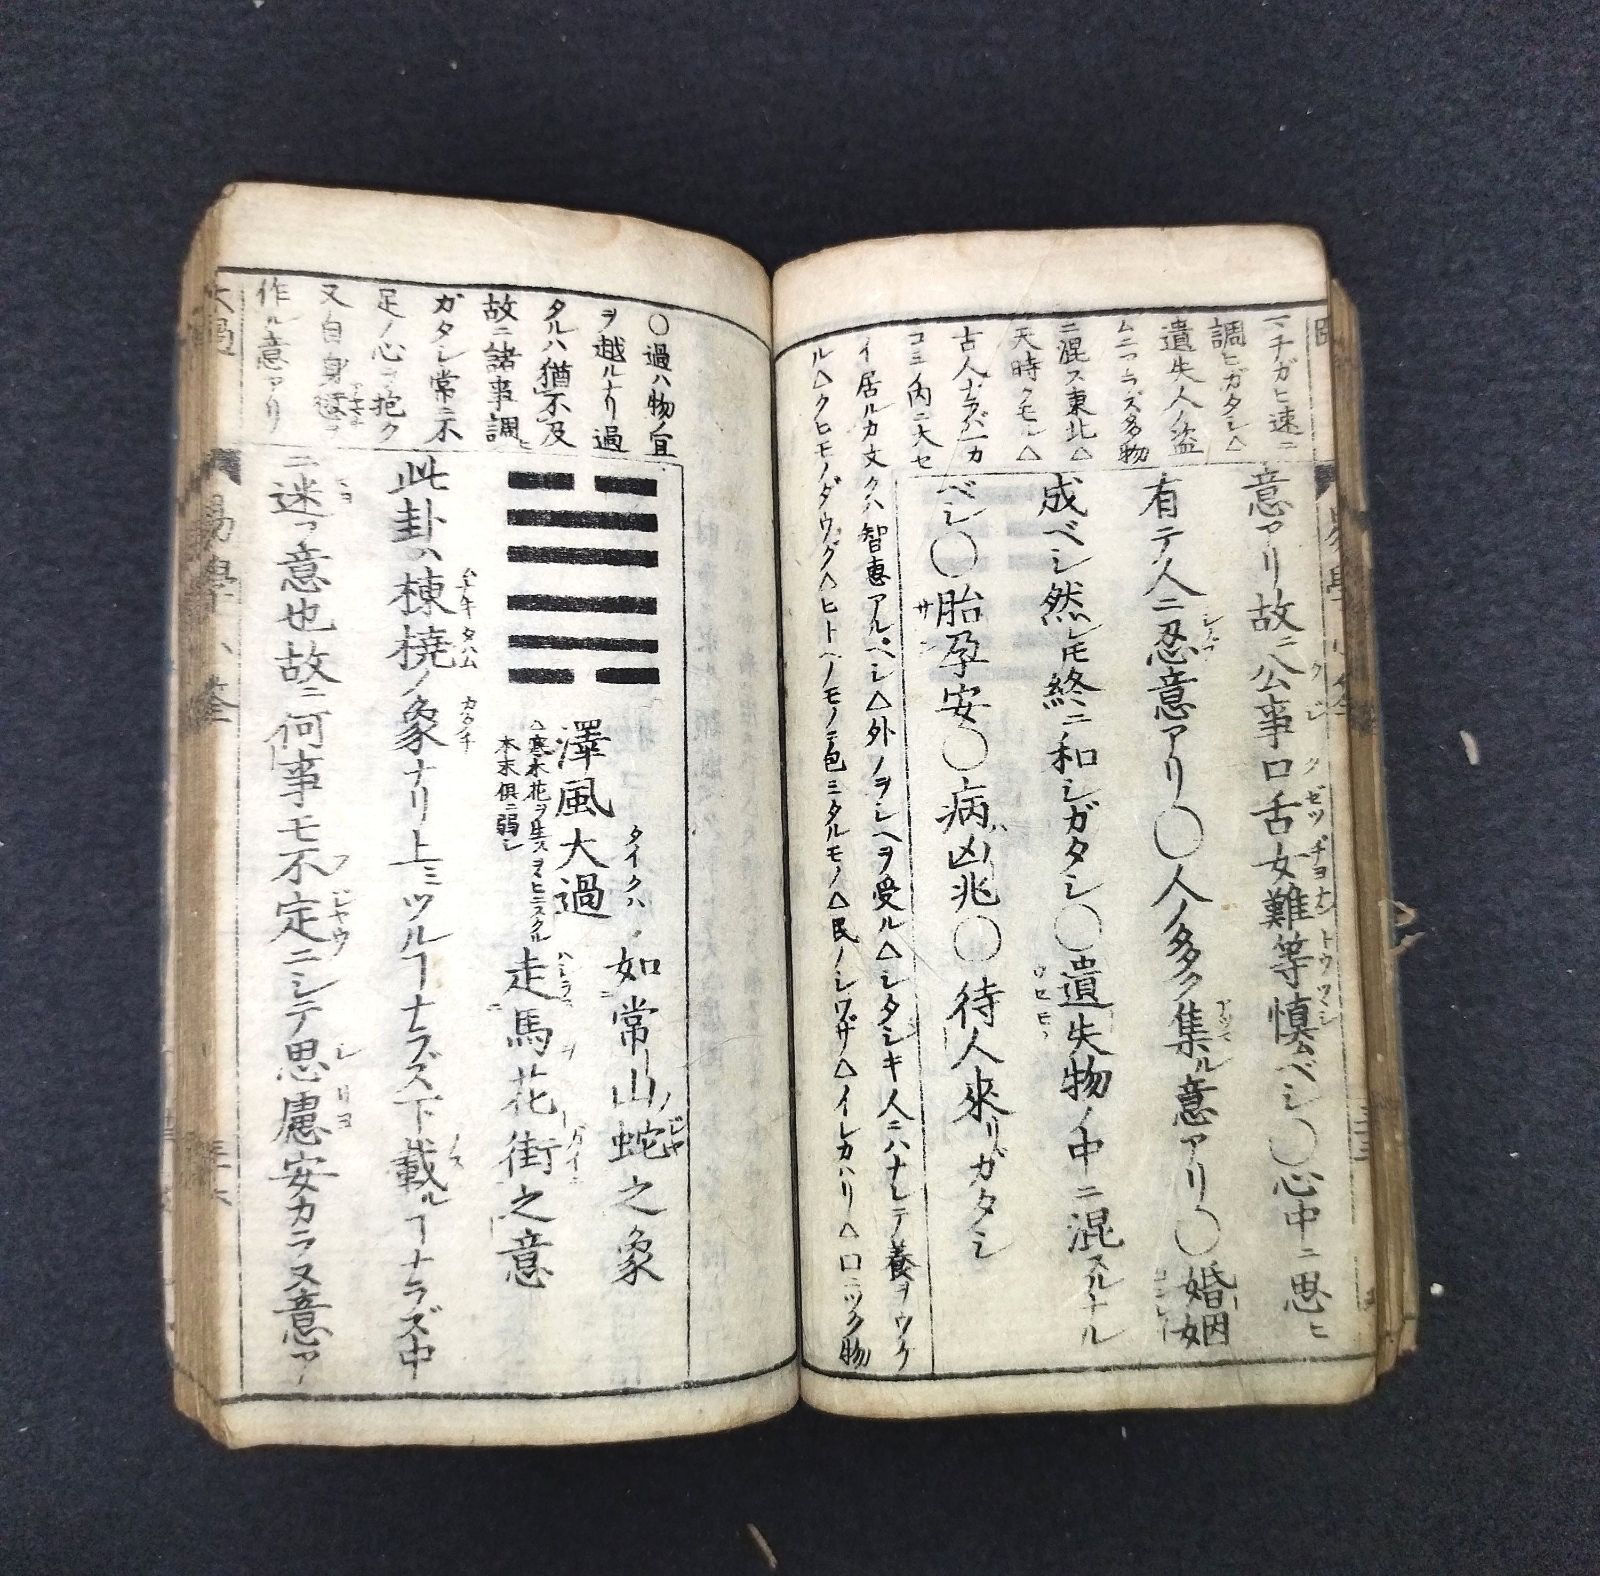 マチガヒ速ニ
調ヒガタシ△
遺失人ノ盗
ムニアラズ多物
ニ混ス東北△
天時クモル△
古人ナラバ一カ
コミノ内ニ大セ
イ居ルカ文クハ智恵アルベシ△外ノヲシヘヲ受ル△シタシキ人ニハナレテ養ヲウク
ル△クヒモノダウグ△ヒトヘノモノニ色ミタルモノ△民ノシワザ△イレカハリ△口ニツク物
意アリ故ニ公事口舌女難等慎ムベシ○心中ニ思ヒ
有テ人ニ忍意アリ○人ノ多ク集ル意アリ○婚姻
成ベシ然レ𪜈終ニ和シガタシ○遺失物ノ中ニ混スルナル
ベシ○胎孕安○病凶兆○待人來リガタシ
○過ハ物ノ宜
ヲ越ルナリ過
タルハ猶不及
故ニ諸事調ヒ
ガタシ常ニ不
足ノ心ヲ抱ク
又自身
作ル意アリ
澤風大過
タイクハ
如常山蛇之象
△寒木花ヲ生
本末俱ニ弱シ
走馬花街之意
此卦ハ棟橈ノ象ナリ上ミツルヿナラズ下載ルヿナラズ中
ニ迷フ意也故ニ何事モ不定ニシテ思慮安カラヌ意アリ
大過
易學小筌